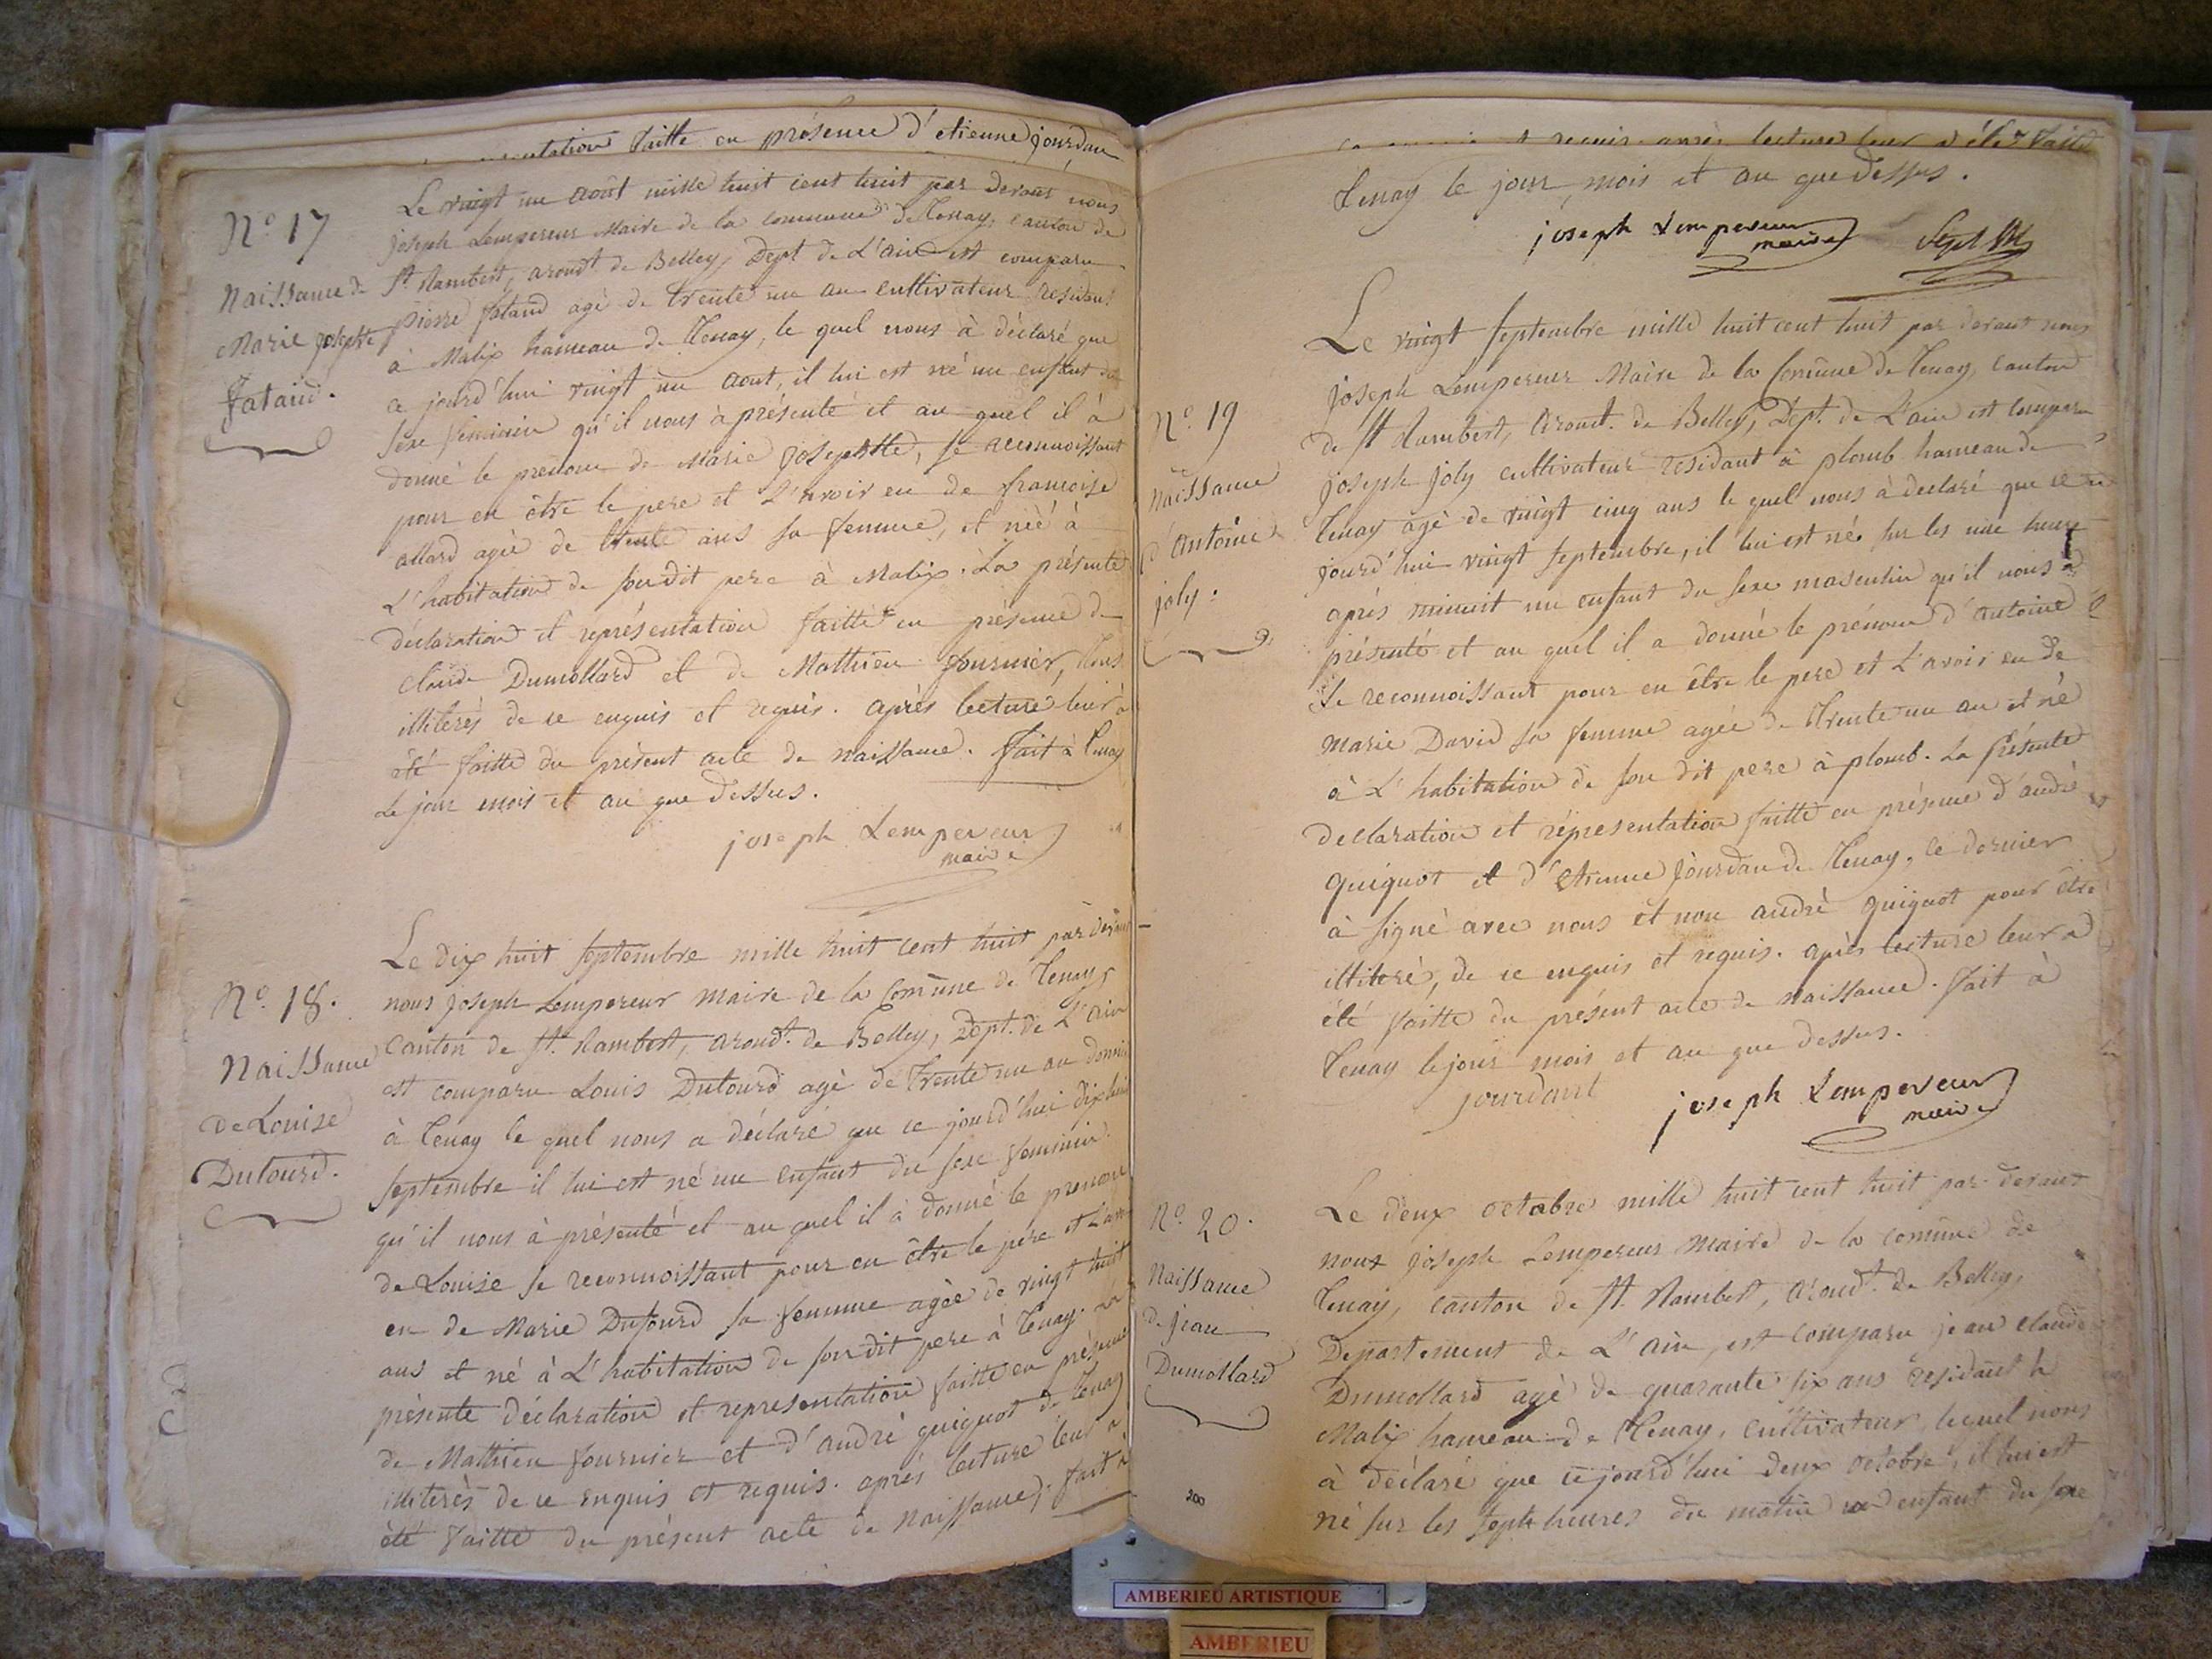 présentation faitte en présence d'etienne jourdan
N.º 17
Naissance de
Marie josephte
fataud.
Le vingt un août mille huit cent huit par devant nous
joseph Lempereur Maire de la commune de Tenay, canton de
St. Rambert, arondt. de Belley, Dept de L'ain est comparu
pierre fataud agé de trente un an cultivateur residant
à Malix hameau de Tenay, le quel nous à déclaré que
ce jourd'hui vingt un aout, il lui est né un enfant du
sexe feminin qu'il nous à présenté et au quel il à
donné le prénom de Marie josephtte, se reconnoissant
pour en être le pere et L'avoir eu de francoise
allard agée de trente ans sa femme, et néé à
L'habitation de son dit pere à Malix. La présente
déclaration et représentation faitte en présence de
claude Dumollard et de Mathieu fournier, tous
illiterés de ce enquis et requis. après lecture leur à
été faitte du présent acte de naissance. fait à Tenay
Le jour mois et an que dessus.
joseph Lempereur
maire
N.º 18.
Naissance
De Louise
Dutourd.
Le dix huit septembre mille huit cent huit par devant
nous joseph Lempereur maire de la Comune de Tenay,
Canton de St. Rambert, arondt. de Belley, Dept. de L'ain
est comparu Louis Dutourd agé de trente un an domicilié
à Tenay le quel nous a déclaré que ce jourd'hui dix huit
septembre il lui est né un enfant du sexe feminin
qu'il nous à présenté et au quel il à donné le prenom
de Louise se reconnoissant pour en être le père et L'avoir
eu de Marie Dutourd sa femme agée de vingt huit
ans et né à L'habitation de son dit pere à Tenay. La
présente déclaration et representation faitte en présence
de Mathieu fournier et d'andré guignot de Tenay
illiterès de ce enquis et requis. après lecture leur a
été faitte du présent acte de naissance; fait à
requis. après lecture leur a été faitte
Tenay le jour, mois et an que dessus.
joseph Lempereur
maire
N.º 19
Naissance
d'antoine
joly.
Le vingt septembre mille huit cent huit par devant nous
joseph Lempereur Maire de la Comune de Tenay, canton
de St Rambert, arondt. de Belley, Dept. de L'ain est comparu
joseph joly cultivateur residant à plomb hameau de
Tenay agé de vingt cinq ans le quel nous à declaré que ce
jourd'hui vingt septembre, il lui est né sur les une heure
après minuit un enfant du sexe masculin qu'il nous à
présenté et au quel il a donné le prénom d'antoine
Se reconnoissant pour en être le pere et L'avoir eu de
Marie David sa femme agée de trente un an et né
à L'habitation de son dit pere à plomb. La présente
declaration et répresentation faitte en présence d'andré
guignot et d'etienne jourdan de Tenay, ce dernier
à signé avec nous et non andré guignot pour être
illiteré, de ce enquis et requis. après lecture leur a
été faitte du présent acte de naissance. fait à
Tenay le jour mois et an que dessus.
jourdant
joseph Lempereur
maire
N.º 20.
Naissance
de jean
Dumollard
Le deux octobre mille huit cent huit par devant
nous joseph Lempereur Maire de la comune de
Tenay, canton de St. Rambert, arondt. de Belley,
Departement de L'ain, est comparu jean claude
Dumollard agé de quarante six ans residant à
Malix hameau de Tenay, cultivateur, lequel nous
à déclaré que ce jourd'hui deux octobre, il lui est
né sur les sept heures du matin un enfant du sexe
200
AMBERIEU ARTISTIQUE
AMBERIEU